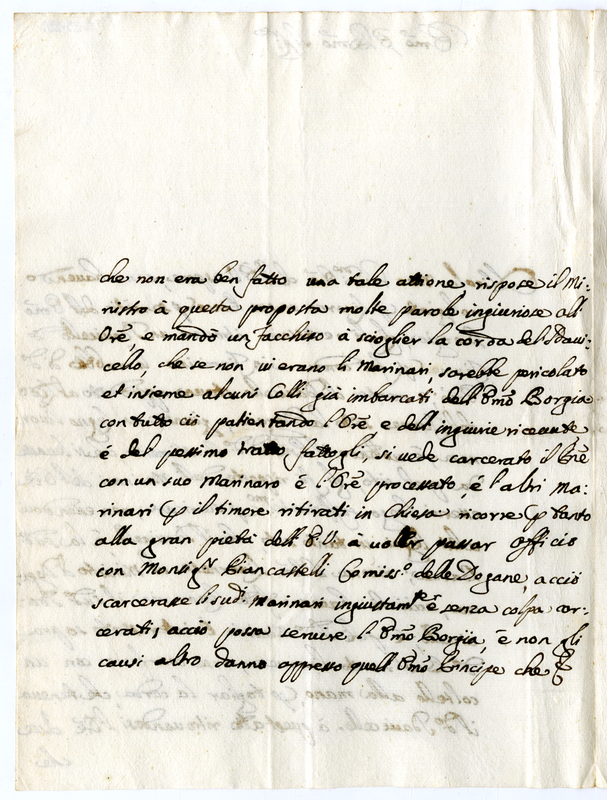 che non era ben fatto una tale attione rispose il Mi:
nistro à questa proposta molte parole ingiuriose all'
Ore, e mandò un facchino à scioglier la corda del Navi:
cello, che se non vi erano li Marinari, sarebbe pericolato
et insieme alcuni Colli già imbarcati dell'Emo Borgia
con tutto ciò patientando l'Ore e dell'ingiurie ricevute
é del pessimo tratto fattogli, si vede carcerato il
con un suo Marinaro é l'Ore processato, é l'altri Ma:
rinari il timore ritirati in Chiesa ricorre tanto
alla gran pietà dell'E.V. à voler passar officio
con Monsigr Giancastelli Comisso delle Dogane, acciò
scarcerasse li sudi Marinari ingiustamte é senza colpa car:
cerati, acciò possa servire l'Emo Borgia, é non gli
causi altro danno appresso quell'Emo Principe che